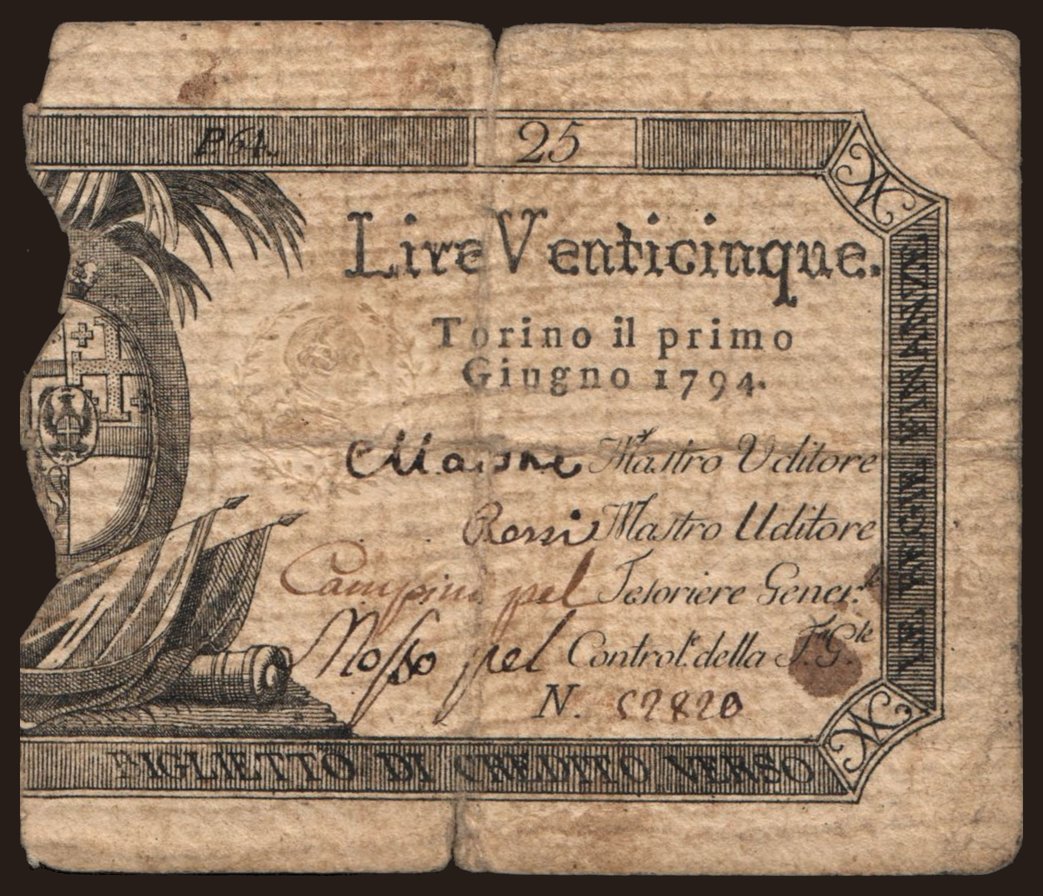 P 64.
25
Lire Venticinque.
Torino il primo
Giugno 1794.
Mastro Uditore
Rossi Mastro Uditore
pel Tesoriere Gener.le
Mosso pel Control.e della T. G.le
N. 52820
BIGLIETTO DI CREDITO VERSO
LE REGIE FINANZE
M
M